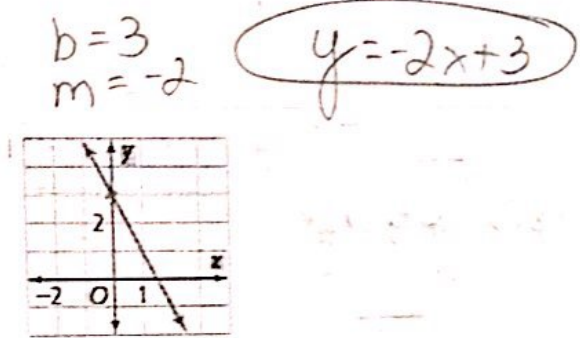 b=3
m=-2
y=-2x+3
y
2
x
-2 O 1